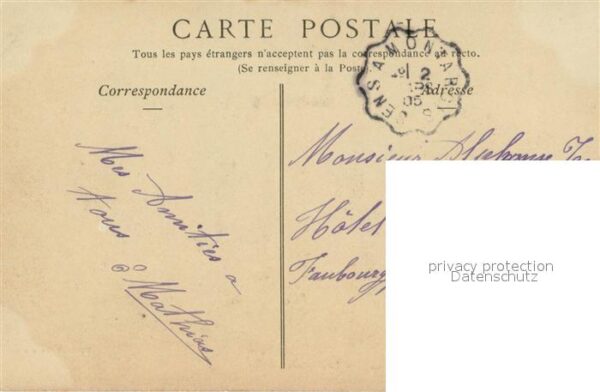 CARTE POSTALE
Tous les pays étrangers n'acceptent pas la correspondance au recto.
(Se renseigner à la Poste)
Correspondance
Adresse
SENS A MONTARGIS
2
05
Mes Amitiés a
tous
Mathias
Monsieur Alphonse
Hôtel
Faubourg
privacy protection
Datenschutz